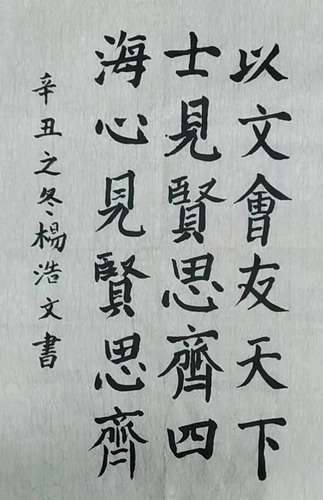 以文會友天下
士見賢思齊四
海心見賢思齊
辛丑之冬楊浩文書